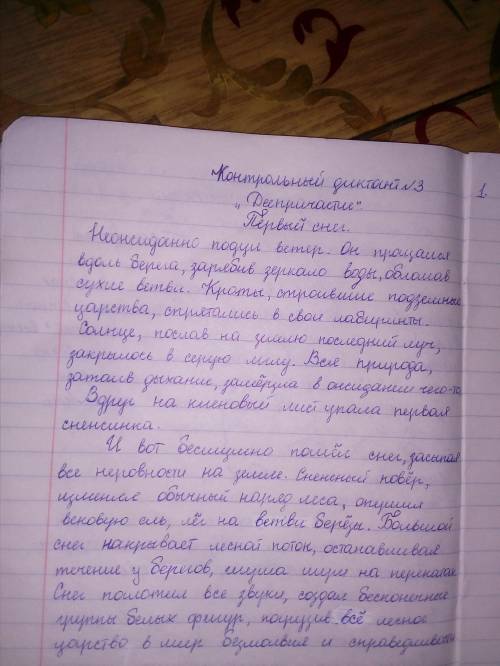 Контрольный диктант №3
1.
„Деепричастие"
Первый снег.
Неожиданно подул ветер. Он промчался
вдоль берега, зарябив зеркало воды, обломав
сухие ветви. Кроты, строившие подземные
царства, спрятались в свои лабиринты.
Солнце, послав на землю последний луч,
закрылось в серую мглу. Вся природа,
затаив дыхание, замёрзла в ожидании чего-то.
Вдруг на кленовый лист упала первая
снежинка.
И вот бесшумно пошёл снег, засыпая
все неровности на земле. Снежный ковёр,
изменив обычный наряд леса, опушил
вековую ель, лёг на ветви берёзы. Большой
снег накрывает лесной поток, останавливая
течение у берегов, глуша шум на перекатах.
Снег поглотил все звуки, создал бесконечные
группы белых фигур, погрузив всё лесное
царство в мир безмолвия и справедливости